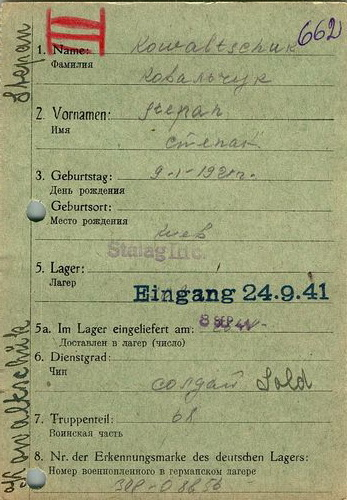 III
662
1. Name: Kowaltschuk
Фамилия
Ковальчук
2. Vornamen: Stepan
Имя
Степан
3. Geburtstag: 9-1-1921г.
День рождения
Geburtsort:
Место рождения
Киев
Stalag
5. Lager:
Лагерь
Eingang 24.9.41
5a. Im Lager eingeliefert am:
Доставлен в лагерь (число)
6. Dienstgrad:
Чин
солдат Sold
7. Truppenteil: 68
Воинская часть
8. Nr. der Erkennungsmarke des deutschen Lagers:
Номер военнопленного в германском лагере
Stepan
Kowaltschuk